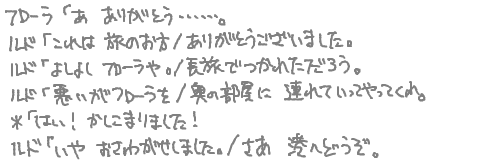 フローラ「あ ありがとう……。
ルド「これは 旅のお方/ありがとうございました。
ルド「よしよし フローラや。/長旅でつかれただろう。
ルド「悪いがフローラを/奥の部屋に 連れていってやってくれ。
*「はい！かしこまりました！
ルド「いや おさわがせしました。/さあ 登へどうぞ。